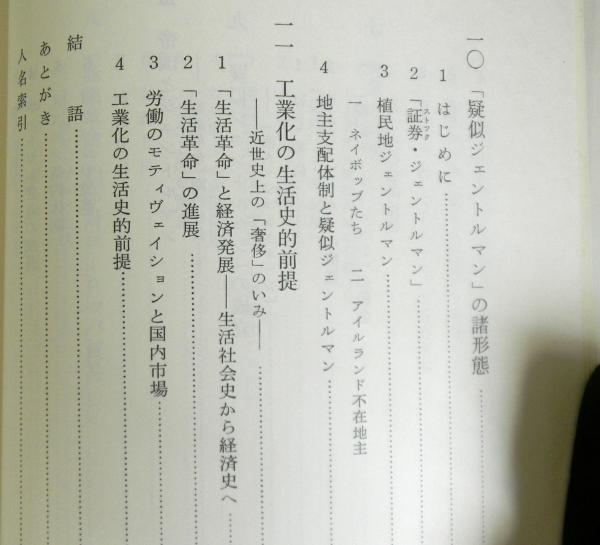 一〇 「疑似ジェントルマン」の諸形態
1 はじめに
2 「証券・ジェントルマン」
ストック
3 植民地ジェントルマン
一 ネイボッブたち 二 アイルランド不在地主
4 地主支配体制と疑似ジェントルマン
一一 工業化の生活史的前提
——近世史上の「奢侈」のいみ——
1 「生活革命」と経済発展——生活社会史から経済史へ
2 「生活革命」の進展
3 労働のモティヴェイションと国内市場
4 工業化の生活史的前提
結語
あとがき
人名索引